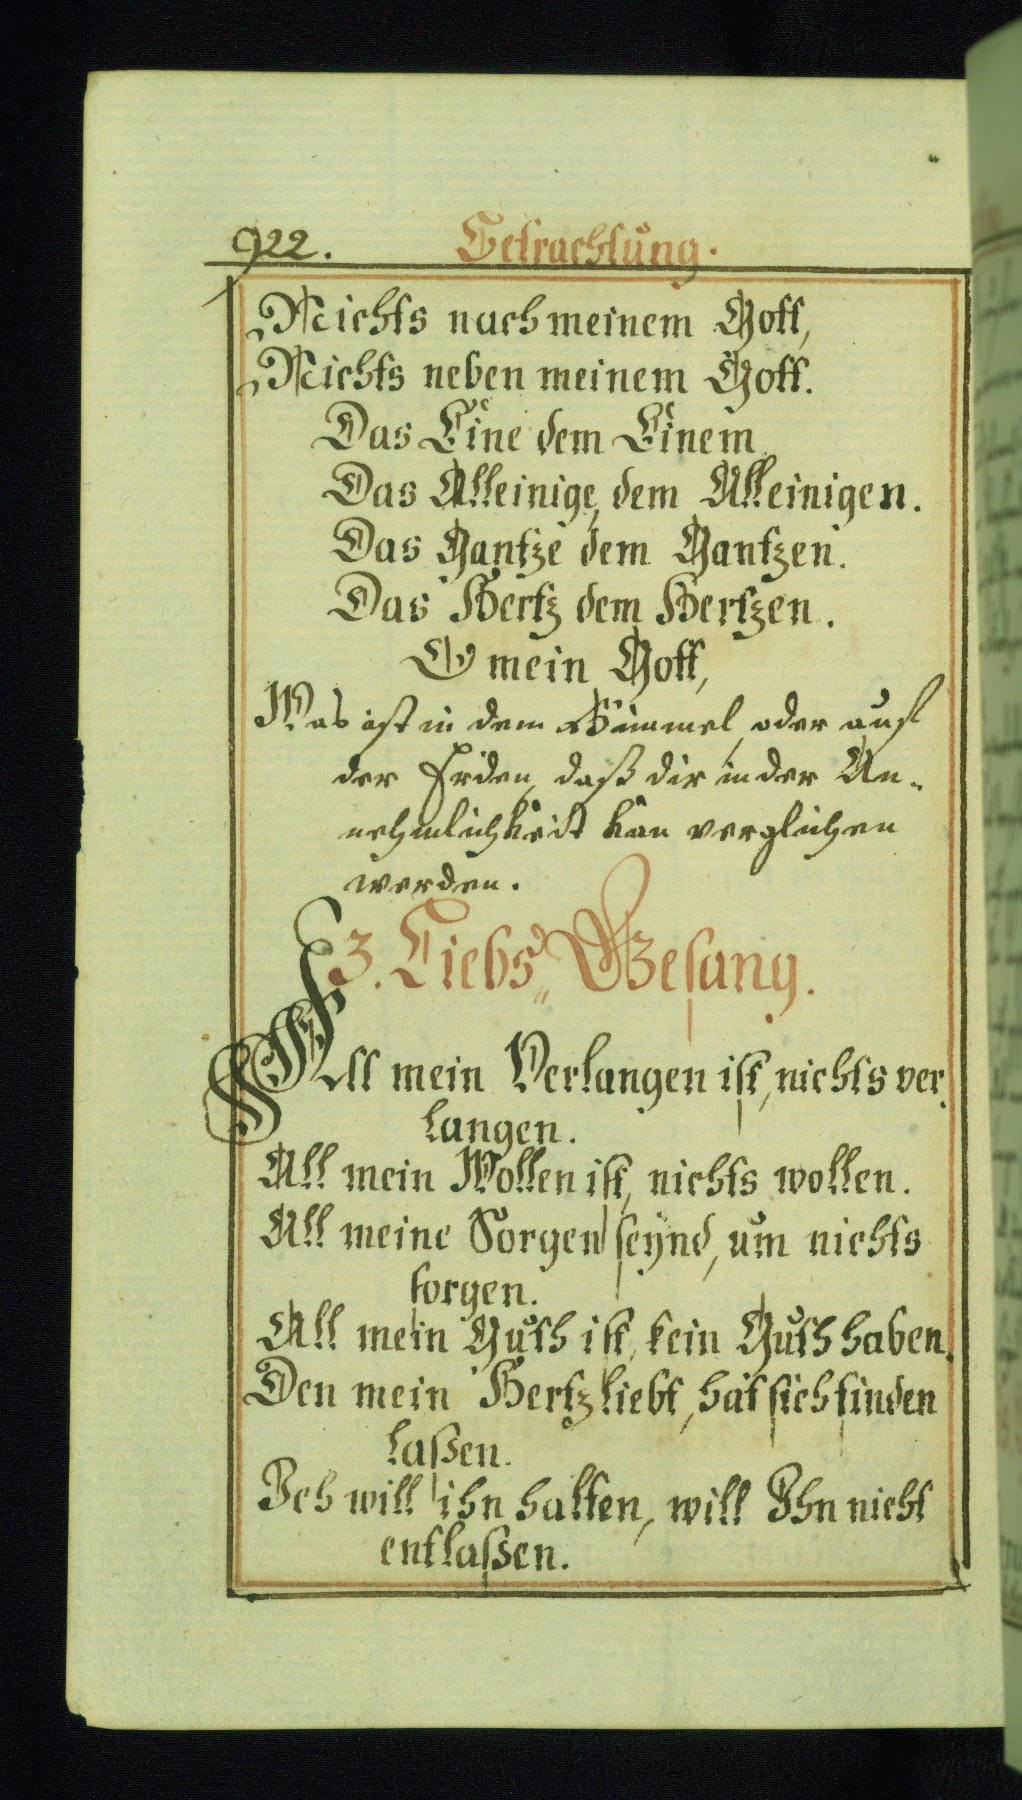 922. Betrachtung.
Nichts nach meinem Gott,
Nichts neben meinem Gott.
Das Eine dem Einem
Das Alleinige, dem Alleinigen.
Das Gantze dem Gantzen.
Das Hertz dem Hertzen.
O mein Gott,
Was ist in dem Himmel, oder auf
der Erden, daß dir in der An-
nehmlichkeit kan verglichen
werden.
3. Liebs„ Gesang.
All mein Verlangen ist, nichts ver„
langen.
All mein Wollen ist, nichts wollen.
All meine Sorgen seynd, um nichts
sorgen.
All mein Guth ist, kein Guth haben.
Den mein Hertz liebt, hat sich finden
laßen.
Ich will ihn halten, will Ihn nicht
entlaßen.